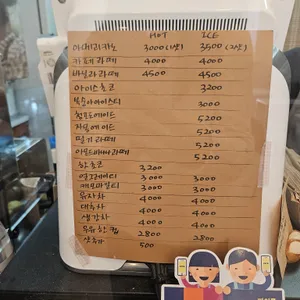 HOT ICE
아메리카노 3000(1샷) 3500(2샷)
카페라떼 4000 4000
바닐라라떼 4500 4500
아이스초코 3200
복숭아아이스티 3000
청포도에이드 5200
자몽에이드 5200
딸기라떼 5200
5200
핫초코 3,200
3000 3000
캐모마일티 3000 3000
유자차 4000 4000
대추차 4000
생강차 4000
우유 한 컵 2800 2800
샷추가 500